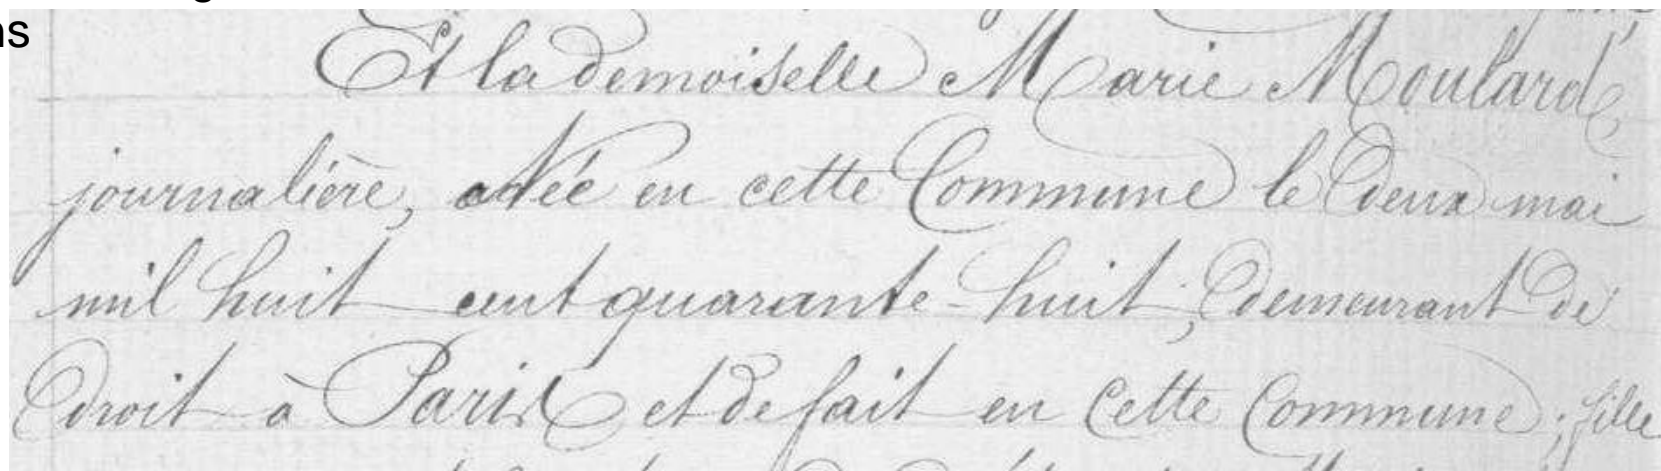 ns
Et la demoiselle Marie Moulard,
journalière, Née en cette Commune le deux mai
mil huit cent quarante-huit, demeurant de
droit à Paris et de fait en cette Commune; fille